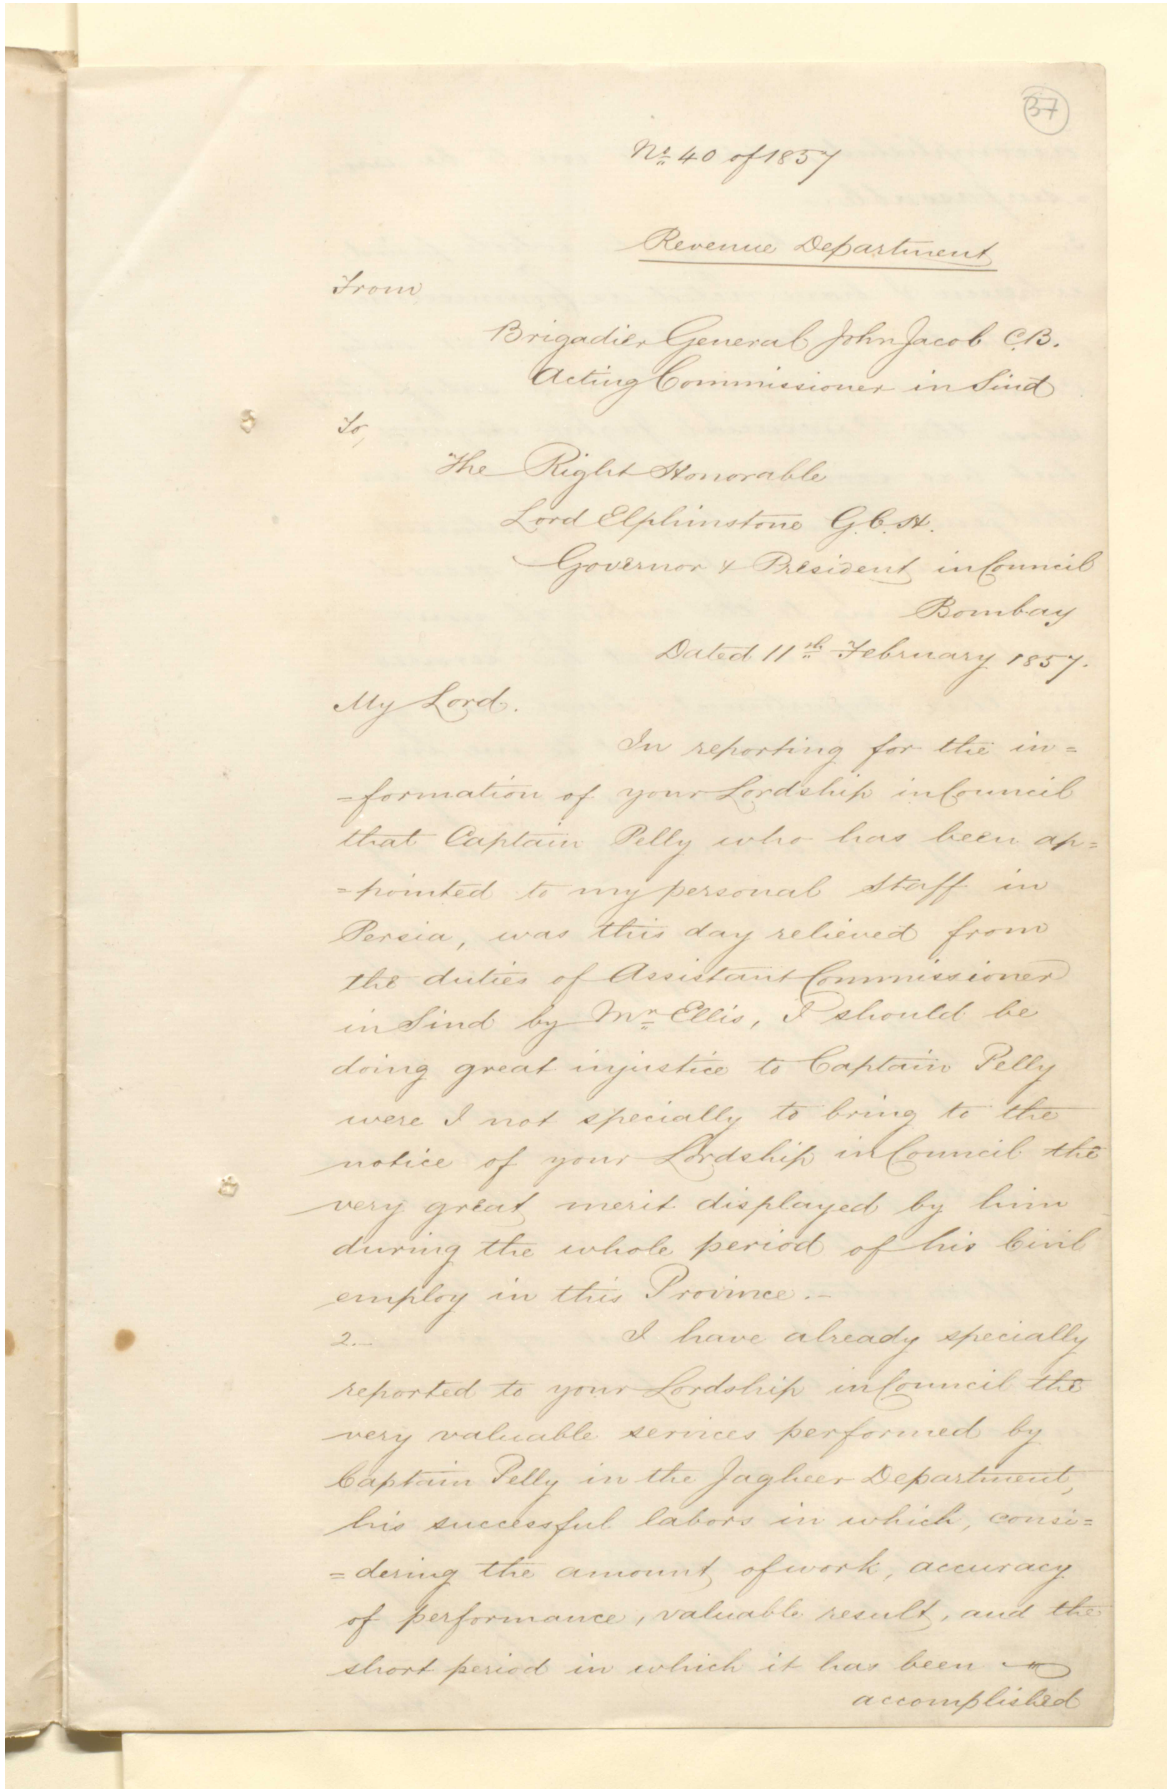 37
No. 40 of 1857
Revenue Department
From
Brigadier General John Jacob C.B.
Acting Commissioner in Sind
To,
The Right Honorable
Lord Elphinstone G.C.H.
Governor & President in Council
Bombay
Dated 11th February 1857.
My Lord.
In reporting for the in=
=formation of your Lordship in Council
that Captain Pelly who has been ap=
=pointed to my personal Staff in
Persia, was this day relieved from
the duties of Assistant Commissioner
in Sind by Mr Ellis, I should be
doing great injustice to Captain Pelly
were I not specially to bring to the
notice of your Lordship in Council the
very great merit displayed by him
during the whole period of his Civil
employ in this Province.—
2.— I have already specially
reported to your Lordship in Council the
very valuable services performed by
Captain Pelly in the Jagheer Department,
his successful labors in which, consi=
=dering the amount of work, accuracy
of performance, valuable result, and the
short period in which it has been
accomplished